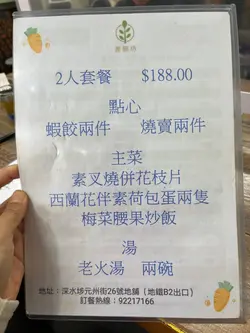 2人套餐 $188.00
點心
蝦餃兩件 燒賣兩件
主菜
素叉燒併花枝片
西蘭花伴素荷包蛋兩隻
梅菜腰果炒飯
湯
老火湯 兩碗
地址：深水埗元州街26號地舖（地鐵B2出口）
訂餐熱線：92217166